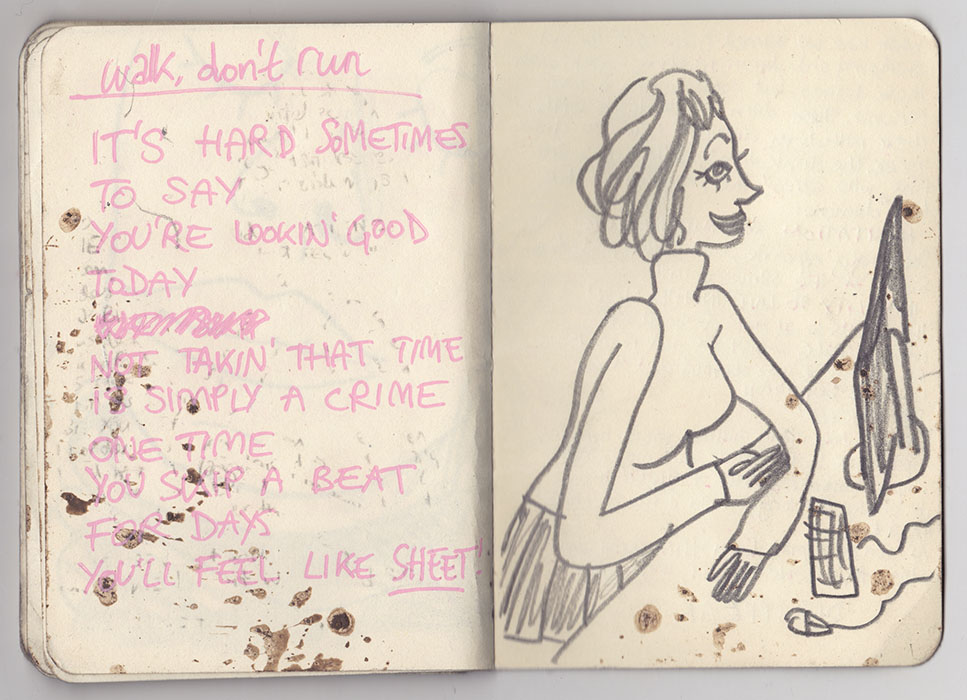 walk, don't run
IT'S HARD SOMETIMES
TO SAY
YOU'RE LOOKIN' GOOD
TODAY
NOT TAKIN' THAT TIME
IS SIMPLY A CRIME
ONE TIME
YOU SKIP A BEAT
FOR DAYS
YOU'LL FEEL LIKE SHEET!